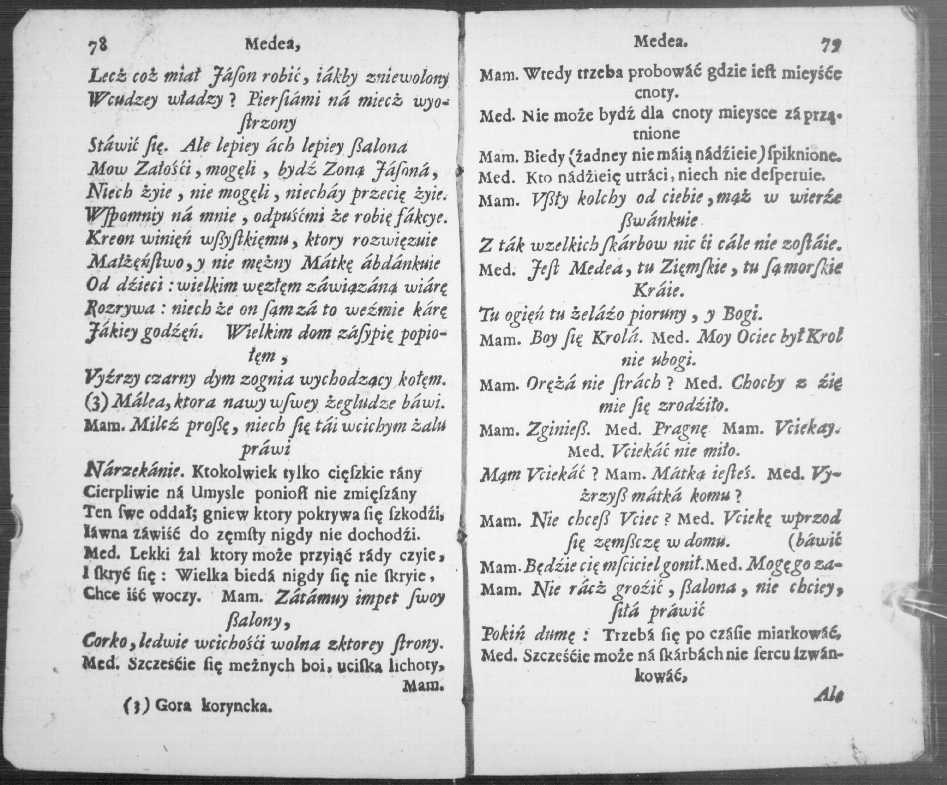 78 Medea,
Lecż coż miał Jáſon robić, iákby zniewolony
Wcudzey władzy ? Pierſiámi ná miecż wyo-
ſtrzony
Stáwić ſię. Ale lepiey ách lepiey ßalona
Mow Załośći, mogęli , bydź Zoną Jáſoná,
Niech żyie , nie mogęli , niecháy przecię żyie.
Wſpomniy ná mnie , odpuśćmi że robię fákcye.
Kreon winięń wßyſtkięmu, ktory rozwięzuie
Małżęńſtwo, y nie mężny Mátkę ábdánkuie
Od dźieci : wielkim węzłęm záwiązáną wiárę
Rozrywa : niech że on ſąm zá to weźmie kárę
Jákiey godźęń. Wielkim dom záſypię popio-
łęm ,
Vyźrzy czarny dym zognia wychodzący kołęm.
(3) Málea, ktora nawy wſwey żegludze báwi.
Mam. Milcź proßę, niech ſię tái wcichym żalu
práwi
Nárzekánie. Ktokolwiek tylko cięſzkie rány
Cierpliwie ná Umysle ponioſł nie zmięſzány
Ten ſwe oddał; gniew ktory pokrywa ſię ſzkodźi,
Iáwna záwiść do zęmſty nigdy nie dochodźi.
Med. Lekki żal ktory może przyiąć rády czyie,
I ſkryć ſię : Wielka biedá nigdy ſię nie ſkryie ,
Chce iść woczy. Mam. Zátámuy impet ſwoy
ßalony,
Corko, ledwie wcichośći wolna zktorey ſtrony.
Med. Szcześćie ſię meżnych boi, uciſka lichoty,
Mam.
(3) Gora koryncka.
Medea. 79
Mam. Wtedy trzeba probowáć gdzie ieſt mieyśće
cnoty.
Med. Nie może bydź dla cnoty mieysce zá prżą-
tnione
Mam. Biedy (żadney nie máią nádźieie) ſpiknione.
Med. Kto nádźieię utráci, niech nie deſperuie.
Mam. Vßły kolchy od ciebie, mąż w wierźe
ßwánkuie
Z ták wzelkich ſkárbow nic ći cále nie zoſtáie.
Med. Jeſt Medea, tu Zięmſkie , tu ſą morſkie
Kráie.
Tu ogięń tu żeláźo pioruny , y Bogi.
Mam. Boy ſię Krolá. Med. Moy Ociec był Krol
nie ubogi.
Mam. Orężá nie ſtrách ? Med. Chocby z źię
mie ſię zrodźiło.
Mam. Zginieß. Med. Pragnę Mam. Vciekay.
Med. Vciekáć nie miło.
Mąm Vciekáć ? Mam. Mátką ieſteś. Med. Vy-
żrzyß mátká komu ?
Mam. Nie chceß Vciec ? Med. Vciekę wprzod
ſię zęmßczę w domu. (báwić
Mam. Będźie cię mſciciel gonił. Med. Mogę go za-
Mam. Nie rácż groźić , ßalona , nie chciey,
ſiłá práwić
Pokiń dumę : Trzebá ſię po czáſie miarkowáć,
Med. Szcześćie może ná ſkárbách nie ſercu ſzwán-
kowáć,
Ale